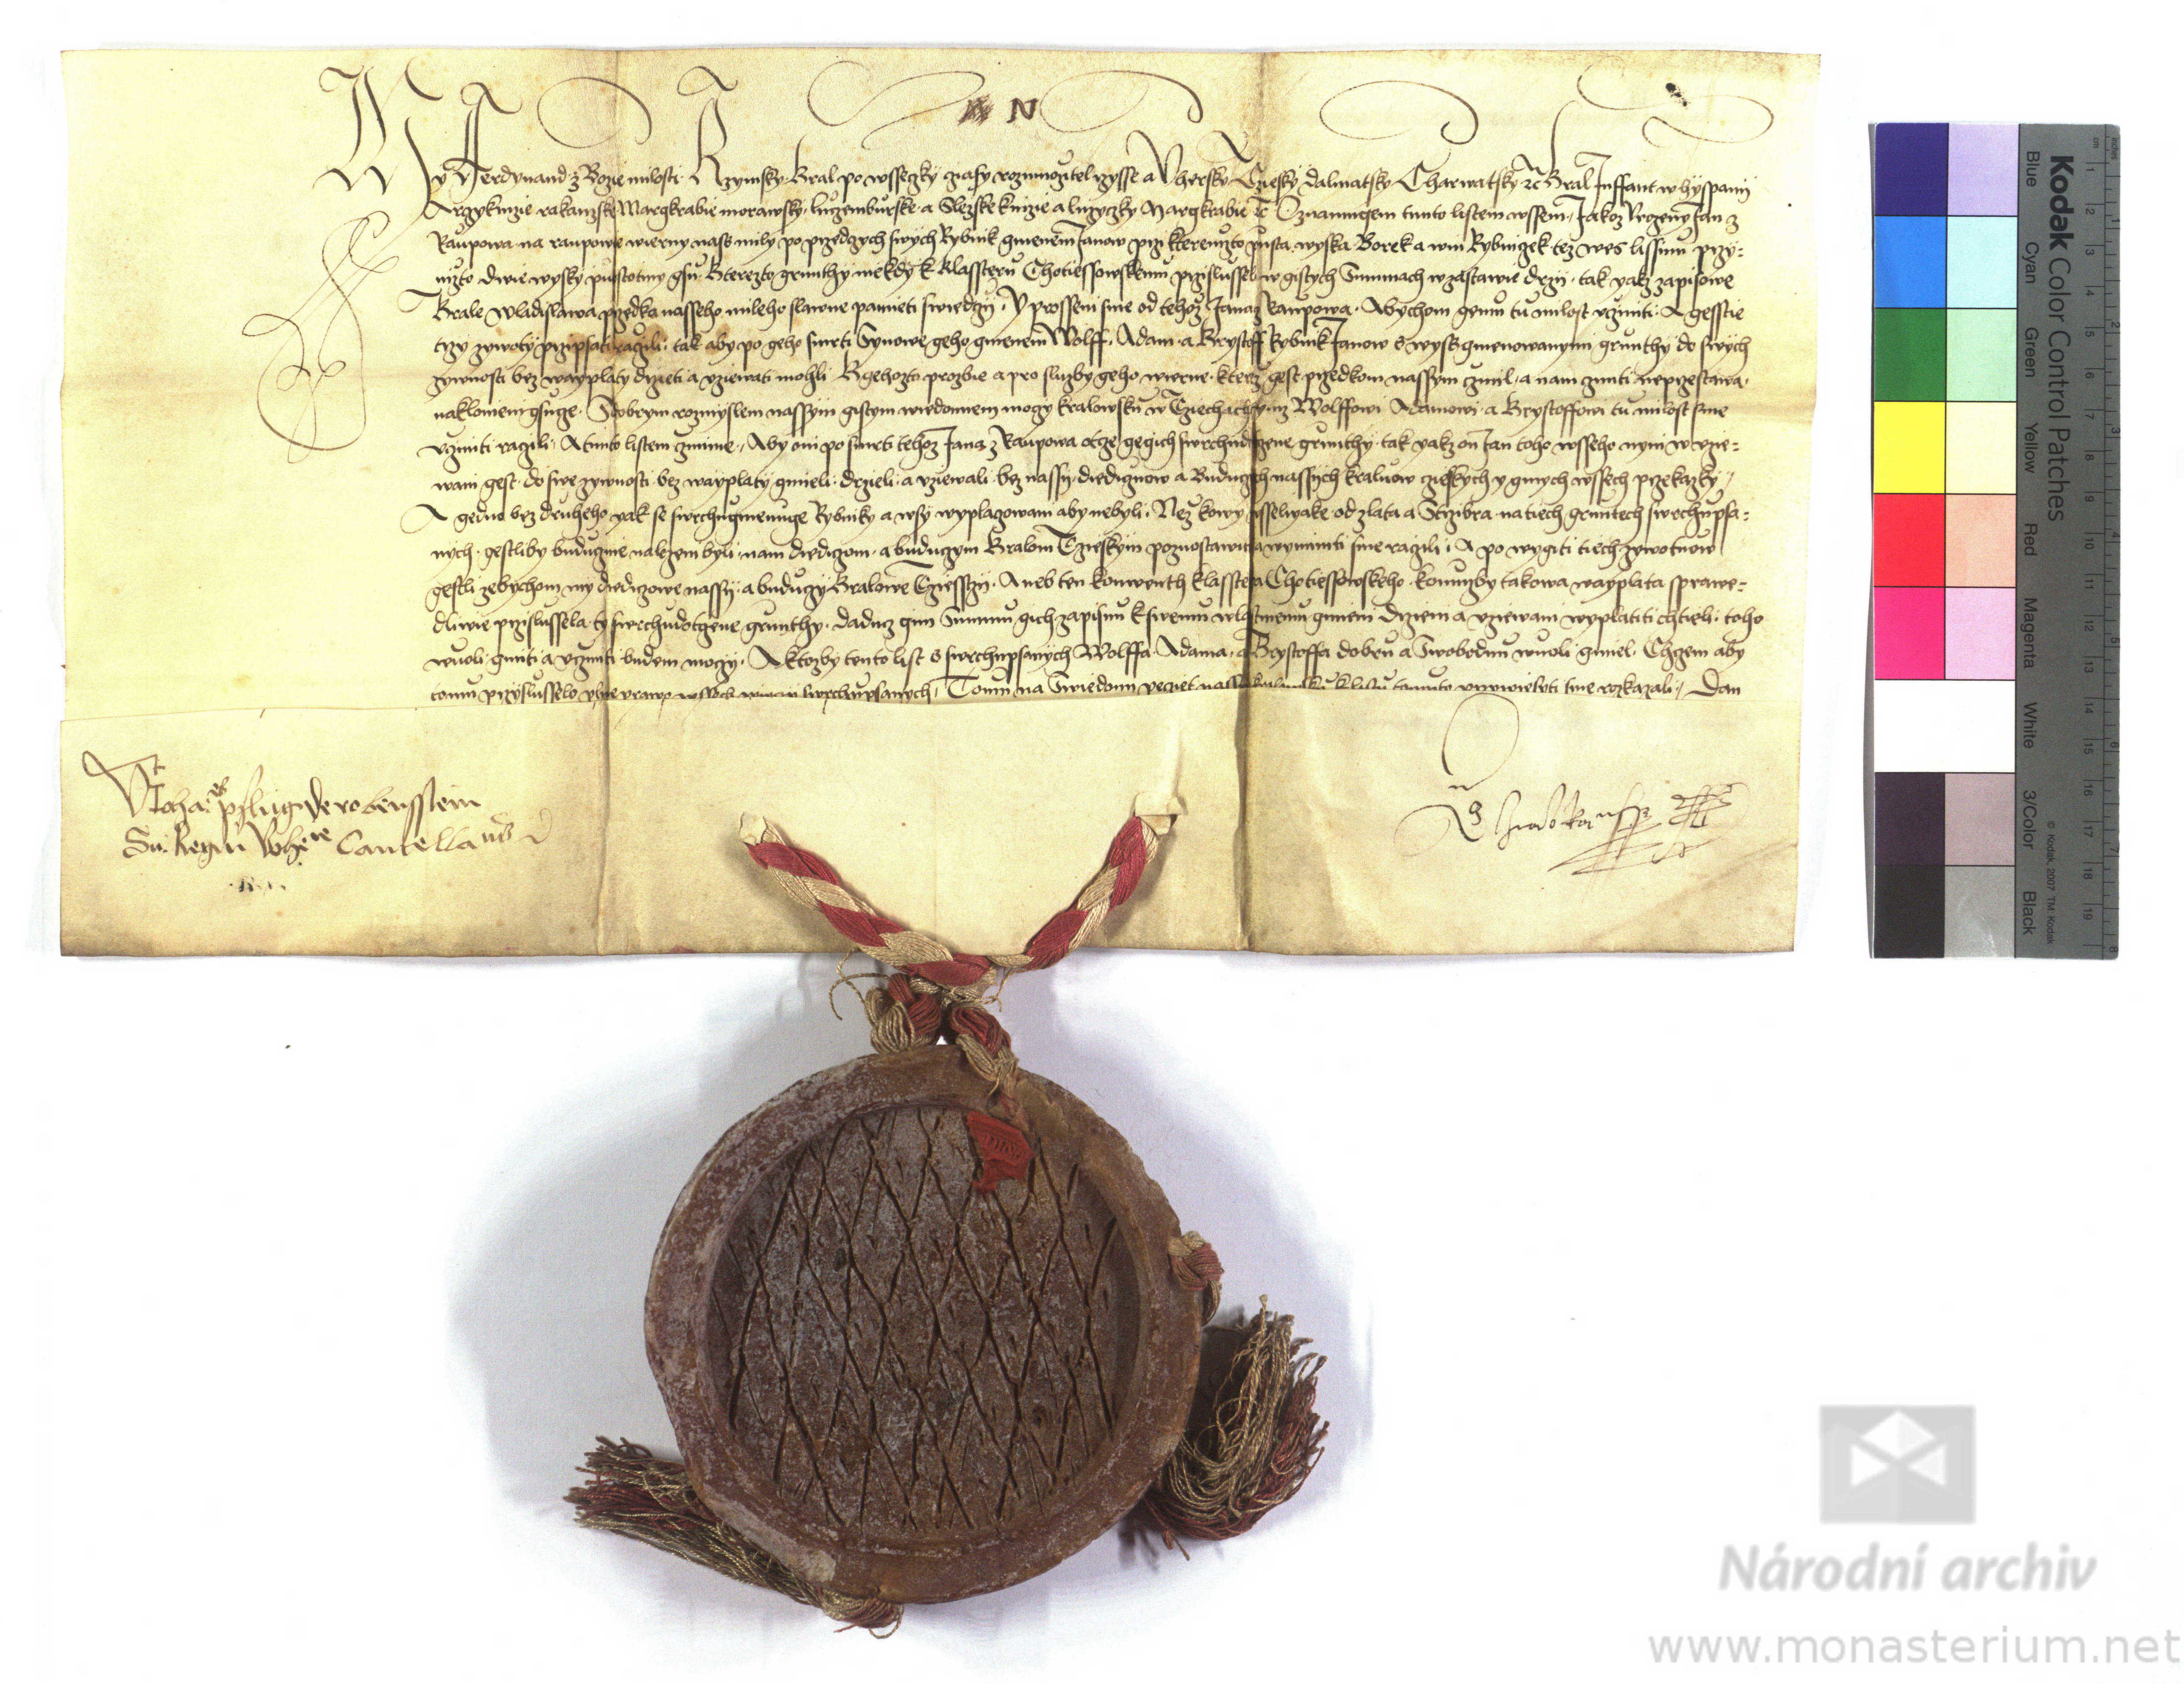 N
My Ferdynand z Bozie milosti Rzymsky Kral po wssezky czasy rozmnozitel rzysse a Vhersky Cziesky Dalmatsky Charwatsky ꝛc Kral Inffant w hyspanij
Arzykniezie rakauzske Margkrabie morawsky luczemburske a Slezske knieze a luzyczky Margkrabie ꝛc Oznamugem tiemto listem wssem Jakoz Vrozeny Jan z
Raupowa na raupowie wierny nass mily po przedczych swych Rybnik gmenem Janow przi kteremzto pusta wyska Borek a win Rybnizek tez wes lissinu przy-
nizto dwie wysky pustotiny gsu Kterezto grunthy niekdy k Klassteru Chotiessowskemu przislussely w gistych Summach w zastawie drzij tak yakz zapisowe
Krale Wladislawa przedka nasseho mileho slawne pamieti swiedczij Y prosseni sme od tehoz Jana z Raupowa Abychom gemu tu milost vcziniti A gesstie
trzy zywoty przipsati raczili tak aby po geho smrti Synowe geho gmenem Wolff Adam a Krystoff Rybnik Janow s wyss gmenowanymi grunthy do swych
zywnosti bez wayplaty drzeti a vziewati mohli K gehozto prozbie a pro sluzby geho wierne kterez gest przedkom nassym czinil a nam cziniti neprzestawa
naklonieni gsucze S dobrym rozmyslem nassym gistym wiedomim moczy kralowsku w Cziechach tymz Wolffowi Adamowi a Krystoffowi tu milost sme
vcziniti raczili A tiemto listem czinime Aby oni po smrti tehoz Jana z Raupowa otcze gegich swrchudotczene grunthy tak yakz on Jan toho wsseho nyni w vzie-
wani gest do swe zywnosti bez wayplaty gmieli drzeli a vziewali bez nassy diediczuow a Buduczych nassych kraluow czieskych y ginych wssech przekazky
A gedno bez druheho yak se swrchugmenuge Rybniky a wsy wyplaczowani aby nebyli Nez kowy wsseliyake od zlata a Strzibra na tiech gruntech swrchupsa-
nych gestliby buducznie nalezeni byli nam diediczom a buduczym Kralom Czieskym pozuostawiti a wyminiti sme raczili A po wygiti tiech zywotuow
gestli zebychom my diediczowe nassy a buduczy Kralowe Czessczy Aneb ten konwenth klasstera Chotiessowskeho komuzby takowa wayplata sprawe-
dliwie przislussela ty swrchudotczene grunthy daducz gim Summu gich zapisnu k swemu wlastniemu gmieni drzeni a vziewani wyplatiti chtieli toho
wuoli gmiti a vcziniti budem moczy A ktozby tento list s swrchupsanych Wolffa Adama a Krystoffa dobru a Swobodnu wuoli gmiel Chczem aby
tomu przyslusselo plne prawo wssech wieczy swrchupsanych Tomu na Swiedomi peczet nassi kralowsku k listu tomuto przywiesyti sme rozkazali Dan
Vt Johaes pflug de robensstein
Su. Regni Bohe Cancellarius
Kodak Color Control Patches
Blue Cyan Green Yellow Red Magenta White 3/Color Black
© Kodak, 2007 TM: Kodak
Národní archiv
www.monasterium.net